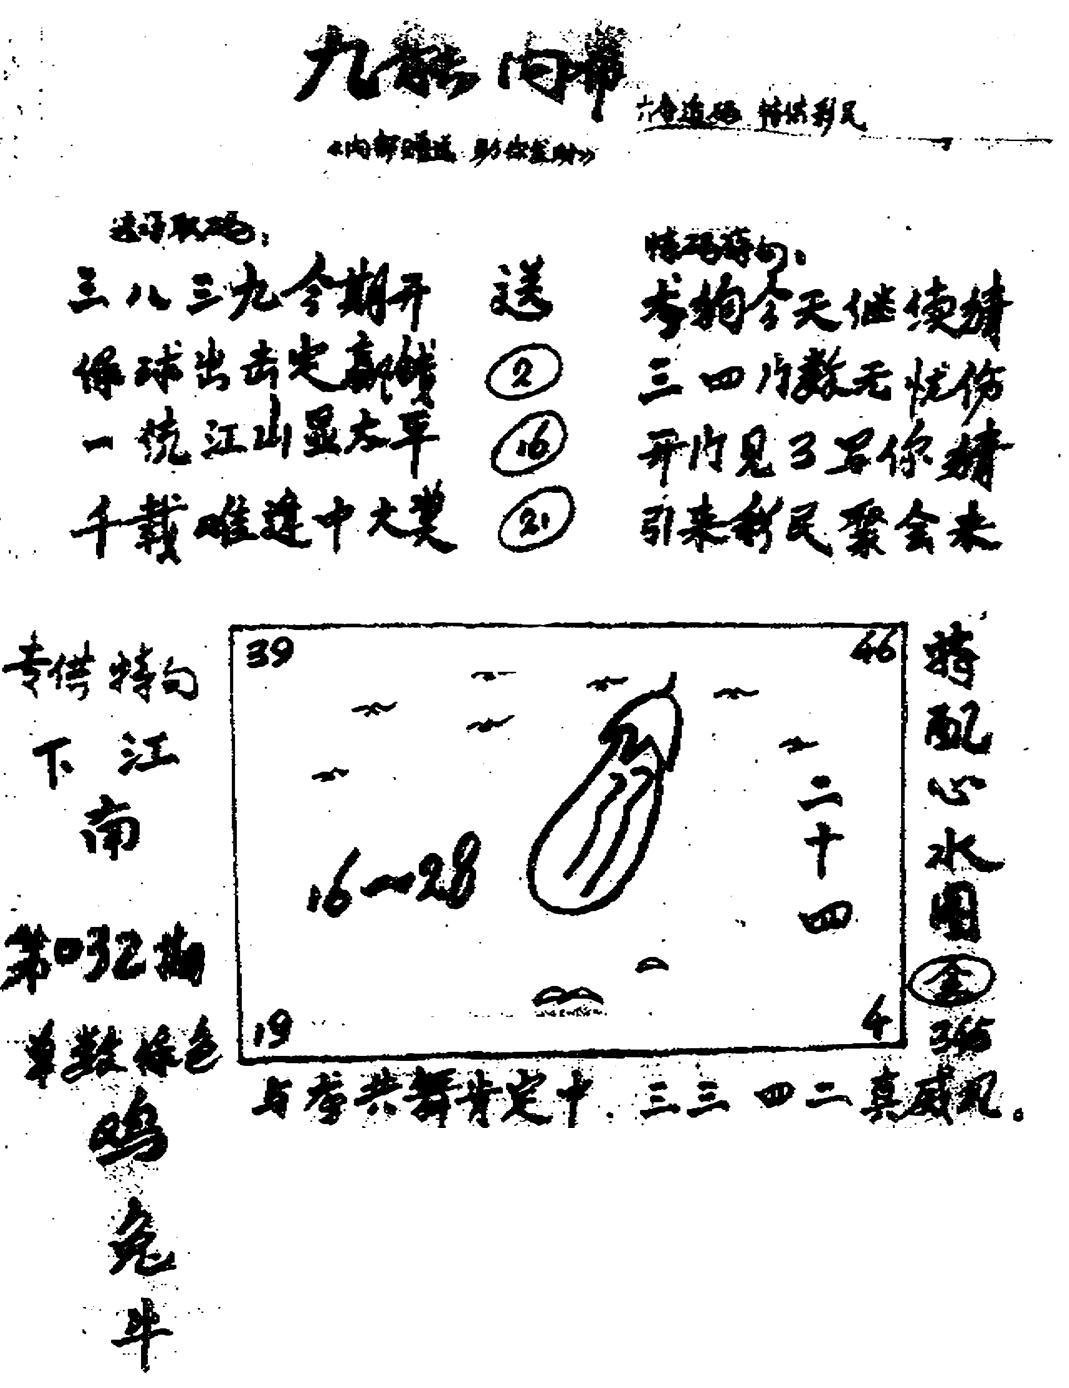 九龍内幕
六合追码 特供彩民
《内部赠送 助你发财》
送你取码：
三八三九今期开 送
绿球出击定赢钱 2
一统江山显太平 16
千载难逢中大奖 21
特码诗句：
今天继续猜
三四片数无忧伤
开片见了器你猜
引来彩民聚会来
专供特句
下江
南
第032期
单数绿色
鸡
兔
牛
39
46
16—28
二十四
19
4
特配心水图
金
345
与君共舞肯定中．三三四二真威风。